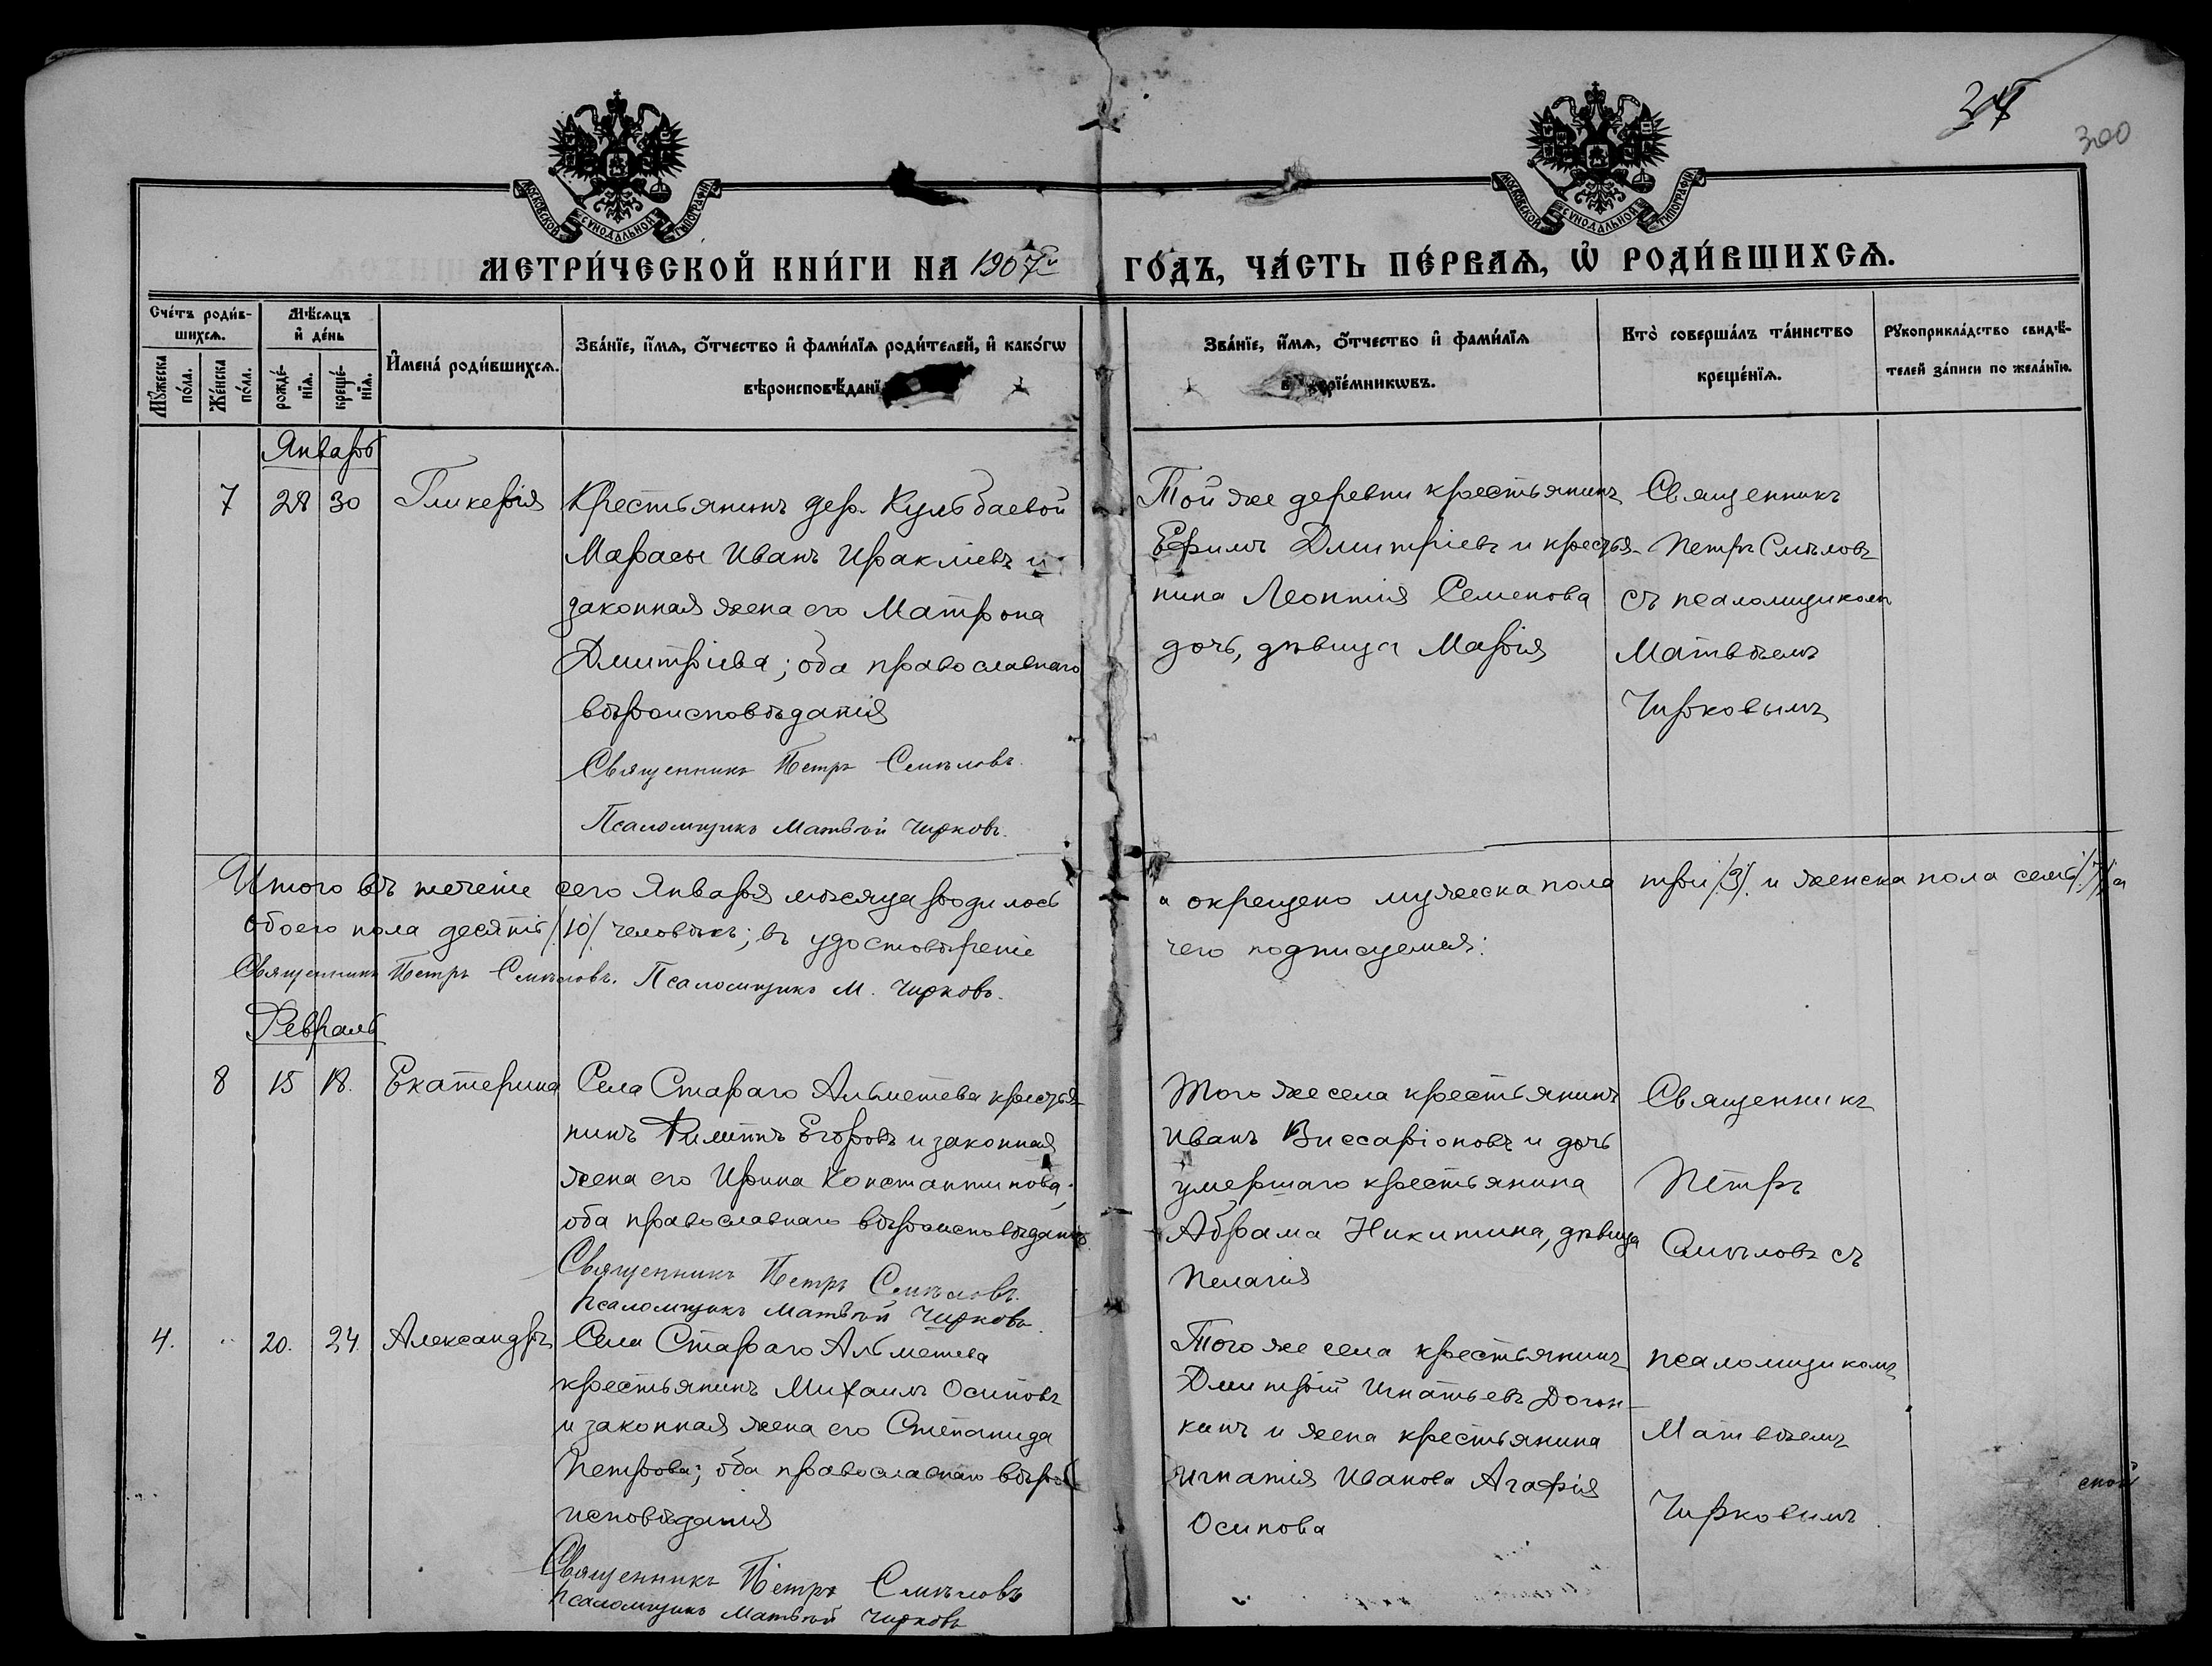 300
МОСКОВСКОЙ СУНОДАЛЬНОЙ ТИПОГРАФІИ
МОСКОВСКОЙ СУНОДАЛЬНОЙ ТИПОГРАФІИ
МЕТРИ́ЧЕСКОЙ КНИ́ГИ НА 1907й ГО́ДЪ, ЧА́СТЬ ПЕ́РВАѦ, Ѡ҆ РОДИ́ВШИХСѦ.
Сче́тъ роди́в-
шихсѧ.
Мꙋ́жеска по́ла.
Же́нска по́ла.
Мѣ́сѧцъ
и҆ де́нь
рожде́-
нїѧ.
креще́-
нїѧ.
И҆мена̀ роди́вшихсѧ.
Зва́нїе, и҆́мѧ, ѻ҆́тчество и҆ фами́лїѧ роди́телей, и҆ како́гѡ
вѣроисповѣ́данї
Зва́нїе, и҆́мѧ, ѻ҆́тчество и҆ фами́лїѧ
прїе́мникѡвъ.
Кто̀ соверша́лъ та́инство
креще́нїѧ.
Рꙋкоприкла́дство свидѣ́-
телей за́писи по жела́нїю.
Январь
7 28 30 Гликерія
Крестьянинъ дер. Кульбаевой
Марасы Иванъ Ираклiевъ и
законная жена его Матрона
Дмитрiева; оба православнаго
вѣроисповѣданiя
Священникъ Петръ Смѣловъ.
Псаломщикъ Матвѣй Чирковъ.
Той же деревни крестьянинъ
Ефимъ Дмитрiевъ и крестья-
нина Леонтiя Семенова
дочь, дѣвица Марiя
Священникъ
Петръ Смѣловъ
съ псаломщикомъ
Матвѣемъ
Чирковымъ
Итого въ теченiе сего Января мѣсяца родилось и окрещено мужеска пола три /3/. и женска пола семь /7/, а
обоего пола десять /10/ человѣкъ; въ удостовѣренiе чего подписуемся:
Священникъ Петръ Смѣловъ. Псаломщикъ М. Чирковъ.
Февраль
8 15 18. Екатерина
Села Стараго Альметева крестья-
нинъ Филиппъ Егоровъ и законная
жена его Ирина Константинова;
оба православнаго вѣроисповѣданiя
Священникъ Петръ Смѣловъ.
Псаломщикъ Матвѣй Чирковъ.
Того же села крестьянинъ
Иванъ Виссарiоновъ и дочь
умершаго крестьянина
Абрама Никитина, дѣвица
Пелагiя
Священникъ
Петръ
Смѣловъ съ
4. " 20. 24. Александръ
Села Стараго Альметева
крестьянинъ Михаилъ Осиповъ
и законная жена его Степанида
Петрова; оба православнаго вѣро
исповѣданiя
Священникъ Петръ Смѣловъ
Псаломщикъ Матвѣй Чирковъ
Того же села крестьянинъ
Дмитрiй Игнатьевъ Догон-
кинъ и жена крестьянина
Игнатiя Иванова Агафiя
Осипова
псаломщикомъ
Матвѣемъ
Чирковымъ.
ской